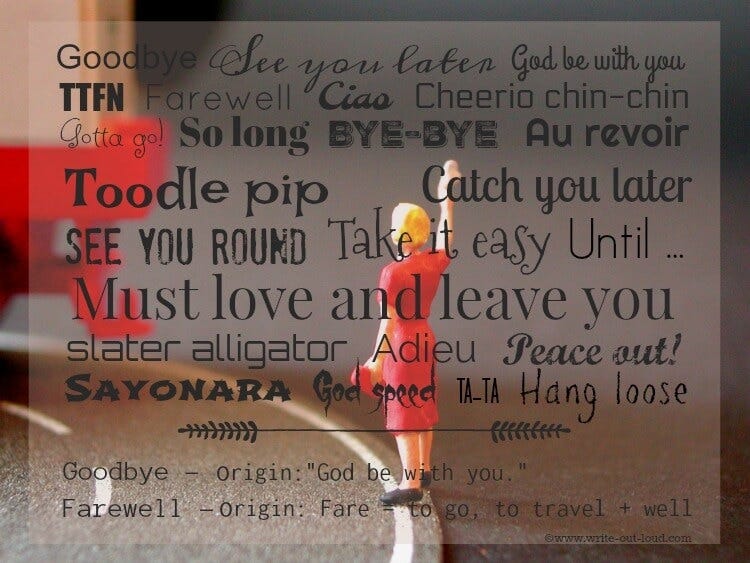 Goodbye See you later God be with you
TTFN Farewell Ciao Cheerio chin-chin
Gotta go! So long BYE-BYE Au revoir
Toodle pip Catch you later
SEE YOU ROUND Take it easy Until ...
Must love and leave you
slater alligator Adieu Peace out!
SAYONARA God speed TA-TA Hang loose
Goodbye – Origin:"God be with you."
Farewell –Origin: Fare = to go, to travel + well
©www.write-out-loud.com